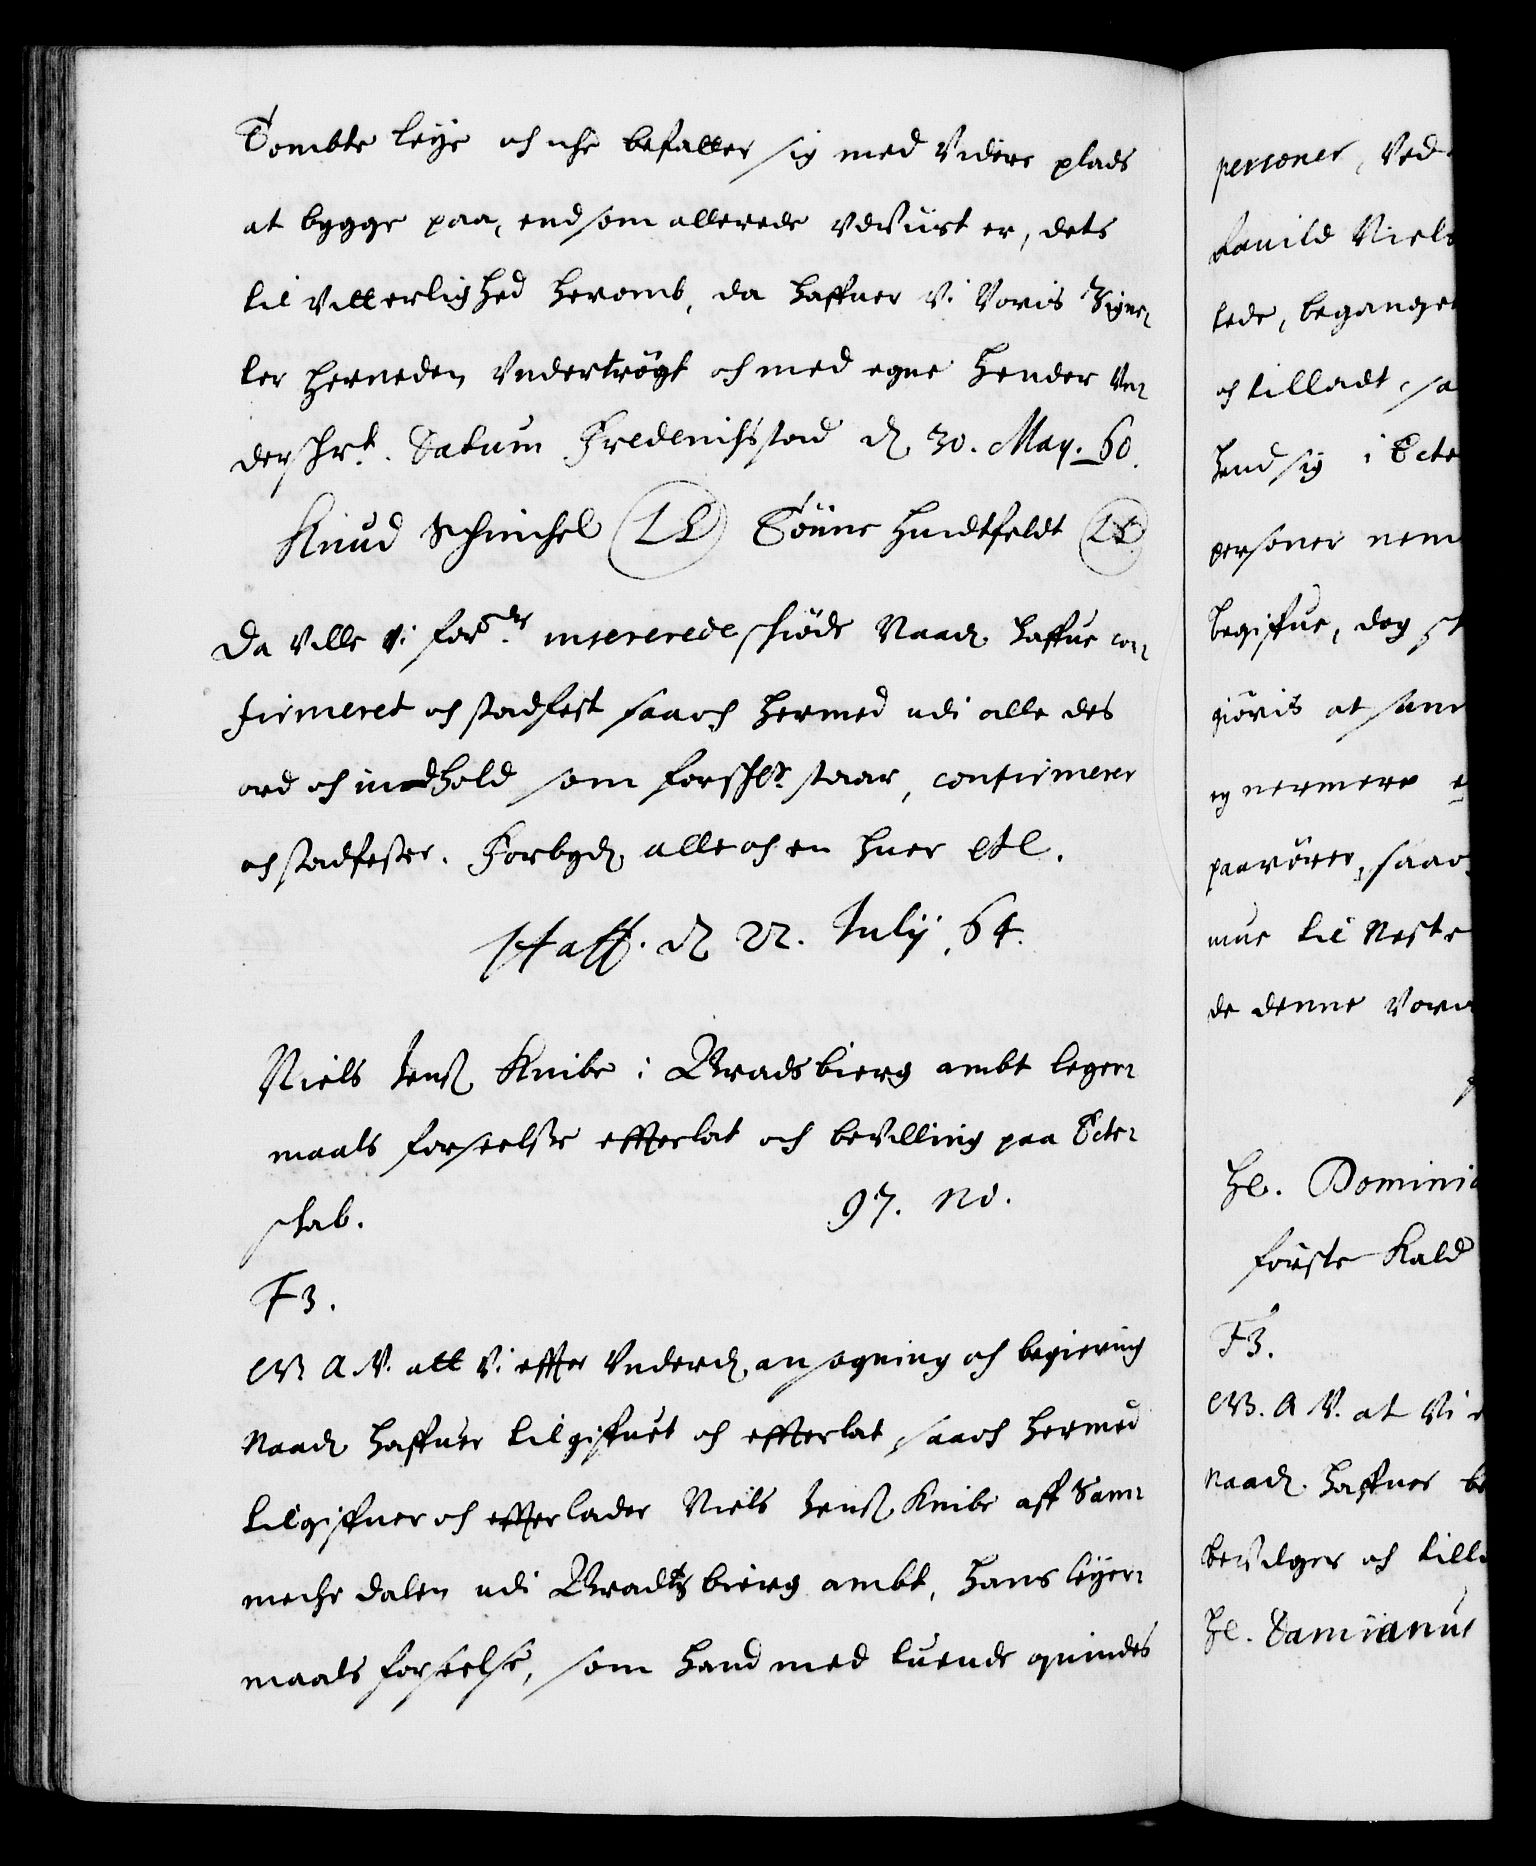 Tombte leije och iche befatter sig med videre plads
at bygge paa, end som allerede vdviist er, dets
til vitterlighed heromb, da haffuer vi voris Signe-
ter herneden vndertrögt och med egne hender vn-
derschr.t. Datum Fredenichstad d. 30. May. 60.
Knud Schinchel (LS) Tönne Huidtfeldt (LS)
Da ville vi for.de insererede schiöde Naad. haffue con-
firmeret och stadfest saa och hermed udi alle des
ord och indhold som forsch.t staar, confirmerer
och stadfester. Forbyd. alle och en huer etc.
Haff. d. 22. Julij, 64.
Niels Jenß. Knibe i Bradsbierg ambt leger-
maals forseelse effterlat och bevilling paa Ecte-
schab. 97. No.
F3.
G. A. V. att vi effter vnderd. ansogning och begiering
Naad. haffuer tilgiffuet och effterlat, saa och hermed
tilgiffuer och effterlader Niels Jenß. Knibe aff Sam-
meche dalen udi Bradtsbierg ambt, hans leijer-
maals forseelse, som hand med tuende quindes
personer, ved
Tauild Niels
tede, begange
och tilladt, sa
hand sig i Ecte
personer nem
begiffue, dog
giöris at sam
eg nermere
paarörer, saa
mue til neste
de denne vor
H.r. Dominic
förste Kald
F3.
G. A. V. at vi
naad. haffuer be
bevilger och till
H.r. Damianus